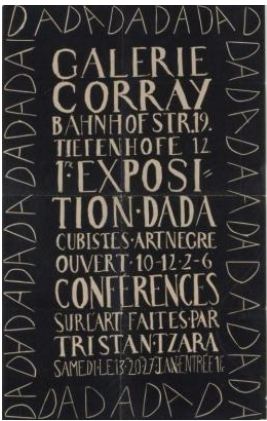 DADADADADADAD
GALERIE
CORRAY
BAHNHOFSTR.19.
TIEFENHOFE 12
1RE EXPOSI=
TION·DADA
CUBISTES·ARTNEGRE
OUVERT·10-12·2-6
CONFERENCES
SUR L'ART FAITES·PAR
TRISTAN·TZARA
SAMEDI·LE 13·20·27·JAN·ENTREE 1fr